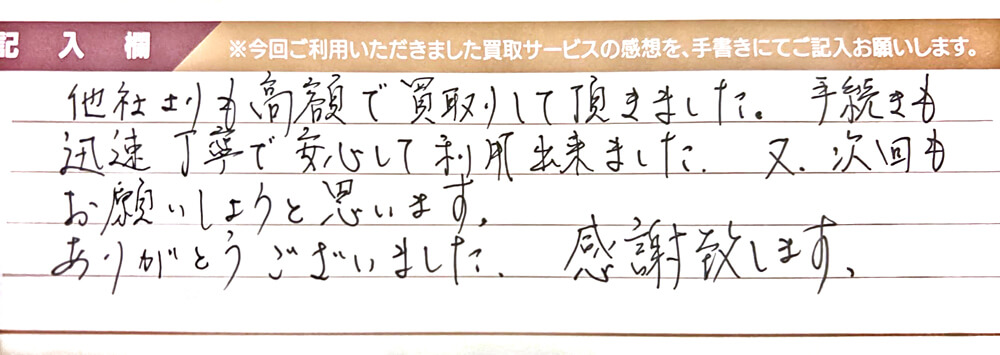 記入欄 ※今回ご利用いただきました買取サービスの感想を、手書きにてご記入お願いします。
他社よりも高額で買取りして頂きました。手続きも
迅速丁寧で安心して利用出来ました。又、次回も
お願いしようと思います。
ありがとうございました。感謝致します。